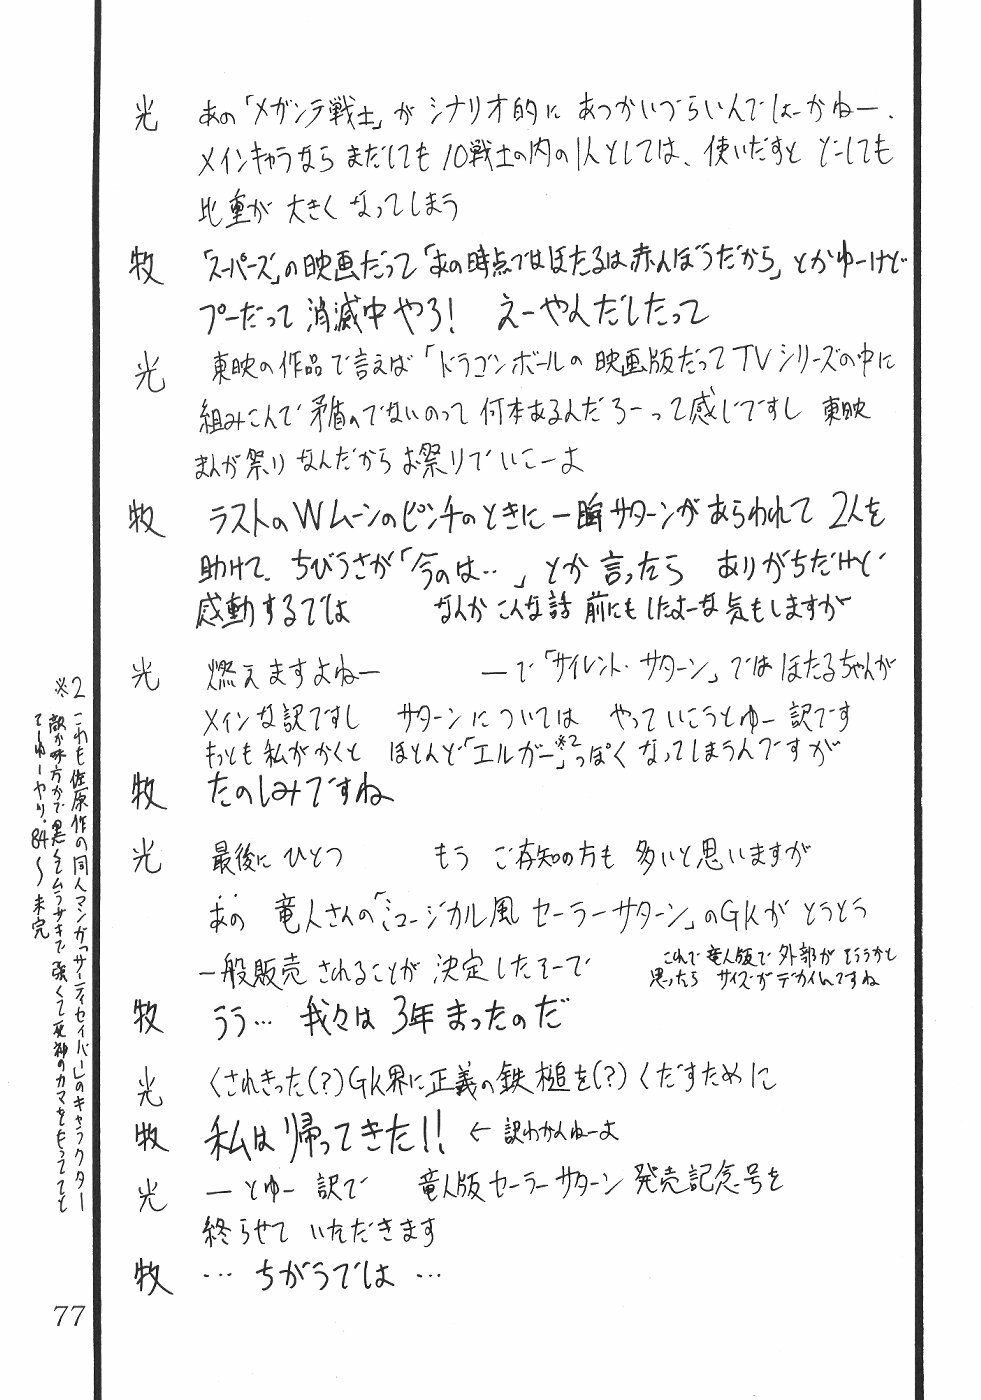 光 あの「メガンテ戦士」が シナリオ的に あつかいづらいんでしょーかねー、
メインキャラなら まだしても 10戦士の内の1人としては、使いだすと どーしても
比重が 大きく なってしまう
牧 「スーパーズ」の映画だって「あの時点ではほたるは赤んぼうだから」とかゆーけど
プーだって 消滅中やろ! えーやんだしたって
光 東映の作品で言えば「ドラゴンボールの映画版だってTVシリーズの中に
組みこんで矛盾のでないのって 何本あるんだろーって感じですし 東映
まんが祭りなんだから お祭りでいこーよ
牧 ラストのWムーンのピンチのときに 一瞬サターンがあらわれて 2人を
助けて、ちびうさが「今のは‥」とか 言ったら ありがちだけど
感動するでは なんか こんな話 前にもしたよーな気もしますが
光 燃えますよねー ーで「サイレント・サターン」では ほたるちゃんが
メインな訳ですし サターンについては やっていこうとゆー 訳です
もっとも私がかくと ほとんど「エルガー」※2っぽく なってしまうんですが
牧 たのしみですね
光 最後に ひとつ もう ご存知の方も 多いと思いますが
あの 竜人さんの「ミュージカル風 セーラーサターン」のGKが とうとう
一般販売 されることが 決定したそーで
これで竜人版で 外部が そろうかと
思ったら サイズがデカイんですね
牧 うう… 我々は 3年まったのだ
光 くされきった(?)GK界に正義の鉄槌を(?)くだすために
牧 私は帰ってきた!! ← 訳わかんねーよ
光 ーとゆー 訳で 竜人版セーラーサターン 発売記念号を
終らせて いただきます
牧 … ちがうでは …
※2 これも佐原作の同人マンガ「サイティセイバー」のキャラクター
敵か味方かで黒くてムラサキで強くて死神のカマをもってて
てーゆーヤツ。84〜未完
77